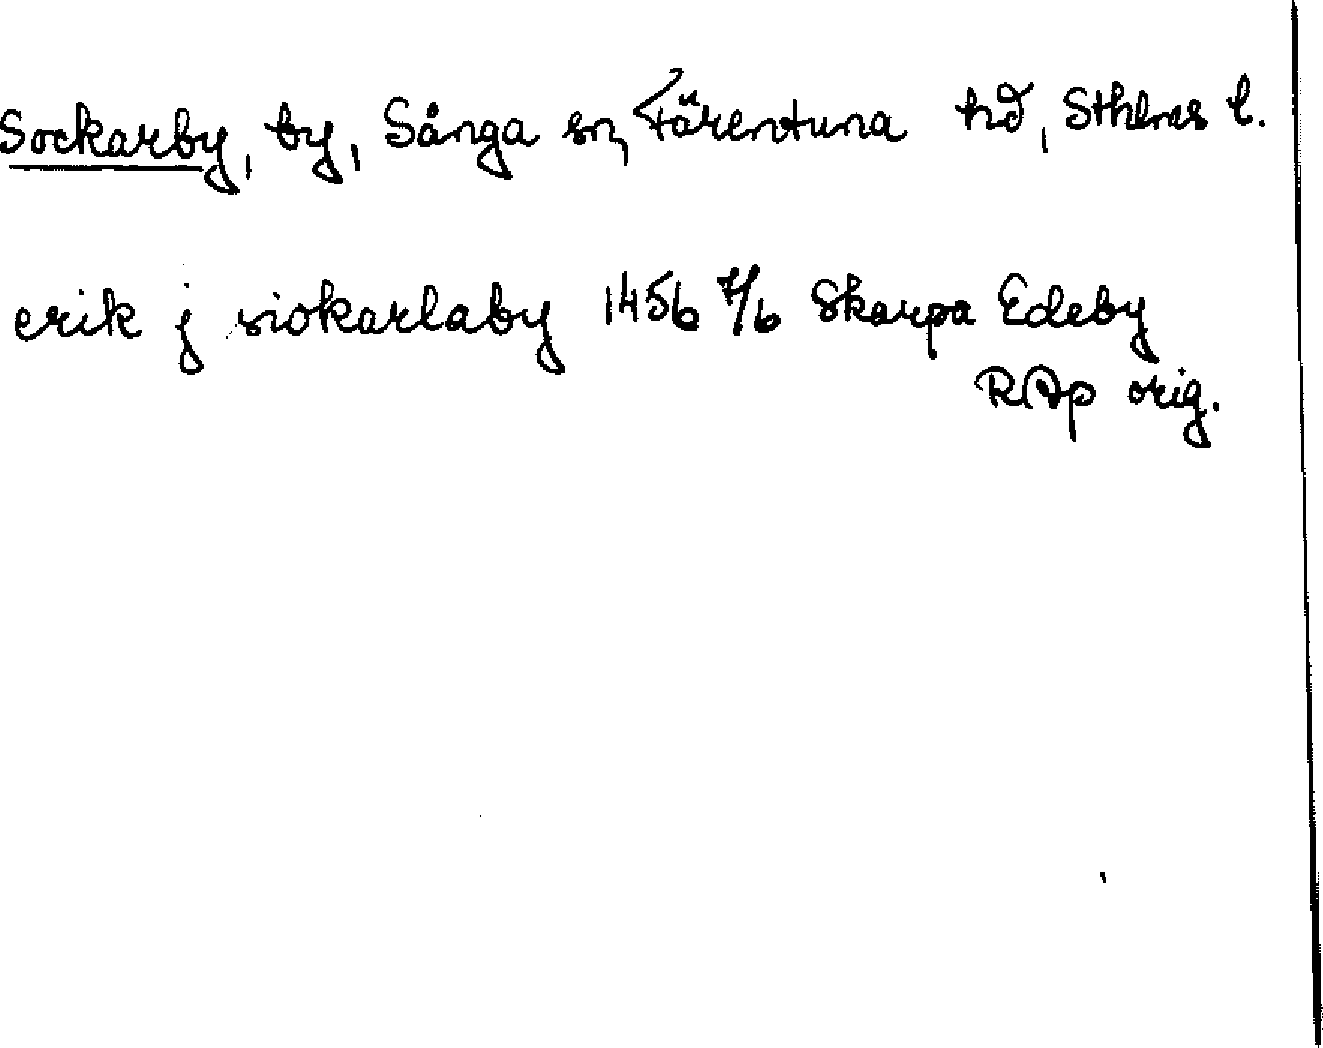 Sockarby, by, Sånga sn, Färentuna hd, Sthlms l.
erik j siokarlaby 1456 7/6 Skarpa Edeby
RAp orig.